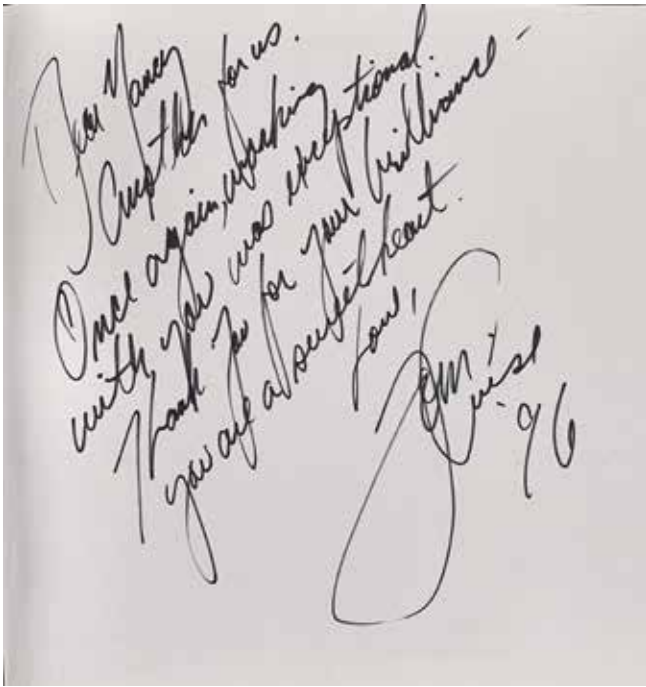 Dear Nancy
Another for us.
Once again, working
with you was exceptional.
Thank you for your brilliance -
you are a sweetheart.
Love,
Tom
Cruise
96